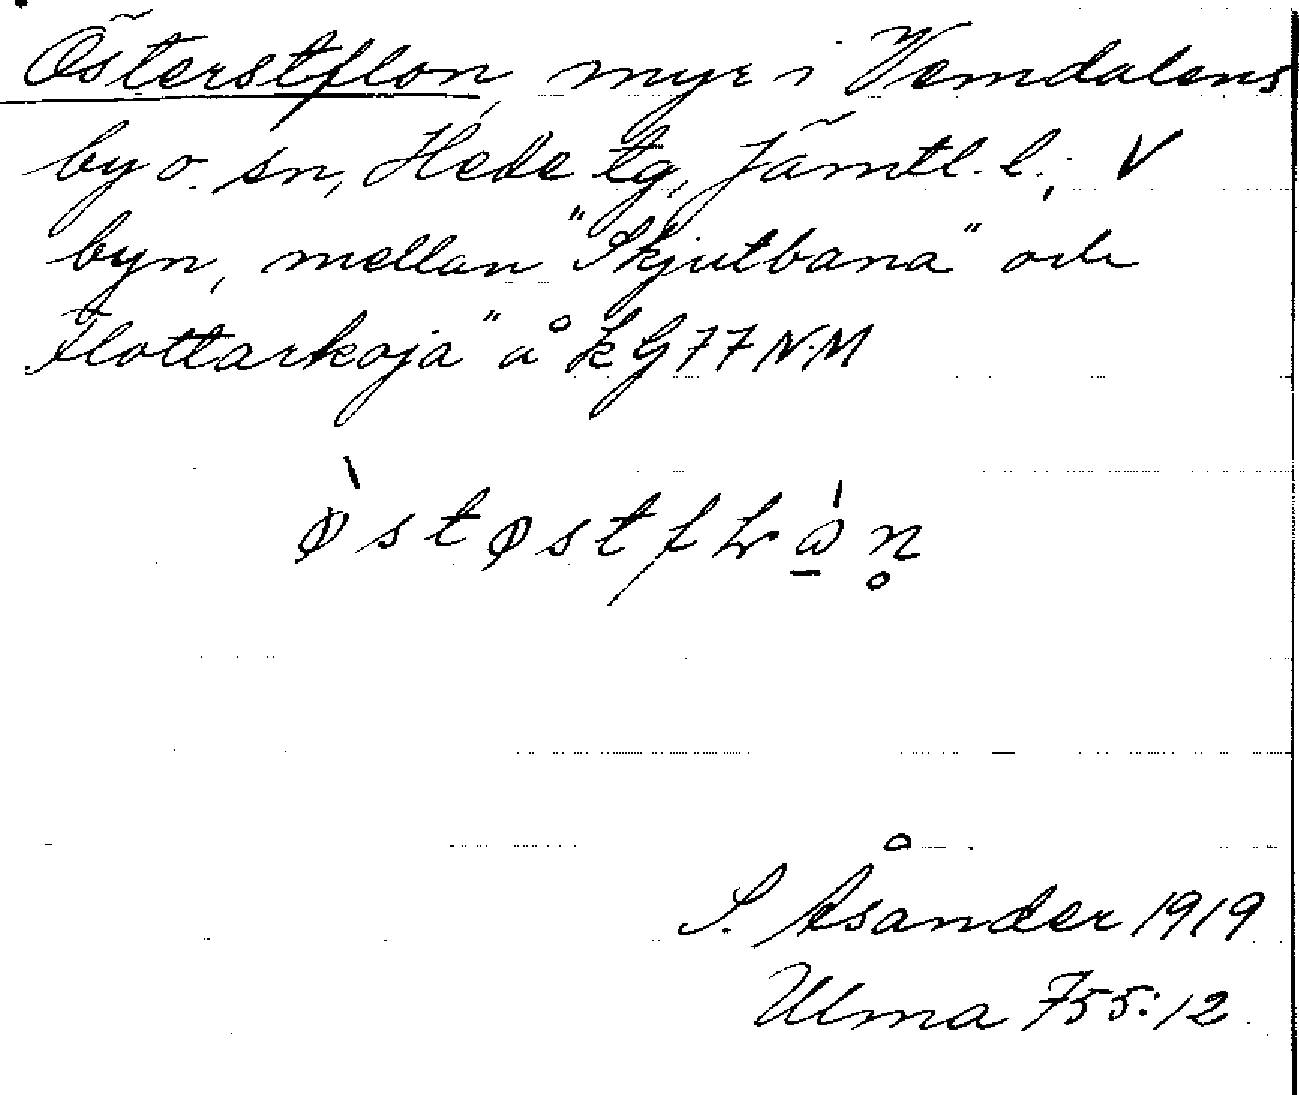 Österstflon, myr i Vemdalens
by o. sn, Hede tg, Jämtl. l.; V
byn, mellan "Skjutbana" och
"Flottarkoja" å kG77NM
S. Åsander 1919
Ulma 755:12